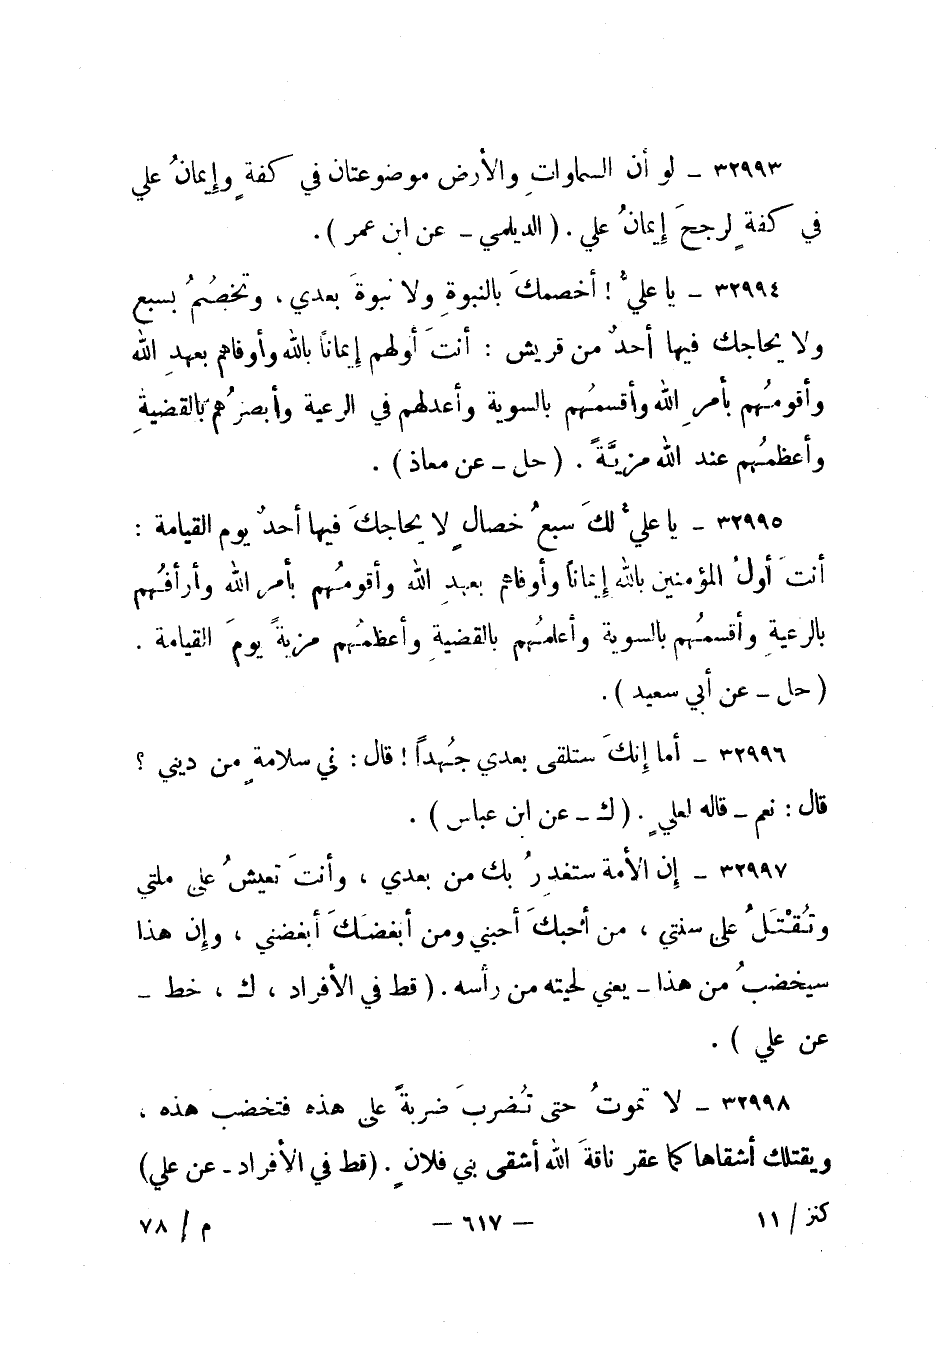 ٣٢٩٩٣ - لو أن السماواتِ والأرض موضوعتان في كفةٍ وإيمانُ علي
في كفةٍ لرجحَ إيمانُ علي . ( الديلمي - عن ابن عمر ) .
٣٢٩٩٤ - يا عليُّ ! أخصمكَ بالنبوةِ ولا نبوةَ بعدي ، وتخصُمُ بسبع
ولا يحاجك فيها أحدٌ من قريش : أنتَ أولهم إيماناً بالله وأوفاهم بعهدِ الله
وأقومُهم بأمرِ الله وأقسمُهم بالسوية وأعدلهم في الرعية وأبصرُهم بالقضيةِ
وأعظمُهم عند الله مزيَّةً . ( حل - عن معاذ ) .
٣٢٩٩٥ - يا عليُّ لكَ سبعُ خصالٍ لا يحاجكَ فيها أحدٌ يوم القيامة :
أنتَ أولُ المؤمنين بالله إيماناً وأوفاهم بعهدِ الله وأقومُهم بأمر الله وأرأفُهم
بالرعيةِ وأقسمُهم بالسوية وأعلمُهم بالقضيةِ وأعظمُهم مزيةً يومَ القيامة .
( حل - عن أبي سعيد ) .
٣٢٩٩٦ - أما إنكَ ستلقى بعدي جُهداً ! قال : في سلامةٍ من ديني ؟
قال : نعم - قاله لعليٍ . ( ك - عن ابن عباس ) .
٣٢٩٩٧ - إن الأمة ستغدِرُ بك من بعدي ، وأنتَ تعيشُ على ملتي
وتُقْتَلُ على سنتي ، من أحبكَ أحبني ومن أبغضَكَ أبغضني ، وإن هذا
سيخضبُ من هذا - يعني لحيته من رأسه . ( قط في الأفراد ، ك ، خط -
عن علي ) .
٣٢٩٩٨ - لا تموتُ حتى تُضربَ ضربةً على هذه فتخضبَ هذه ،
ويقتلك أشقاها كما عقر ناقةَ الله أشقى بني فلانٍ . (قط في الأفراد - عن علي)
كنز / ١١ - ٦١٧ - م / ٧٨